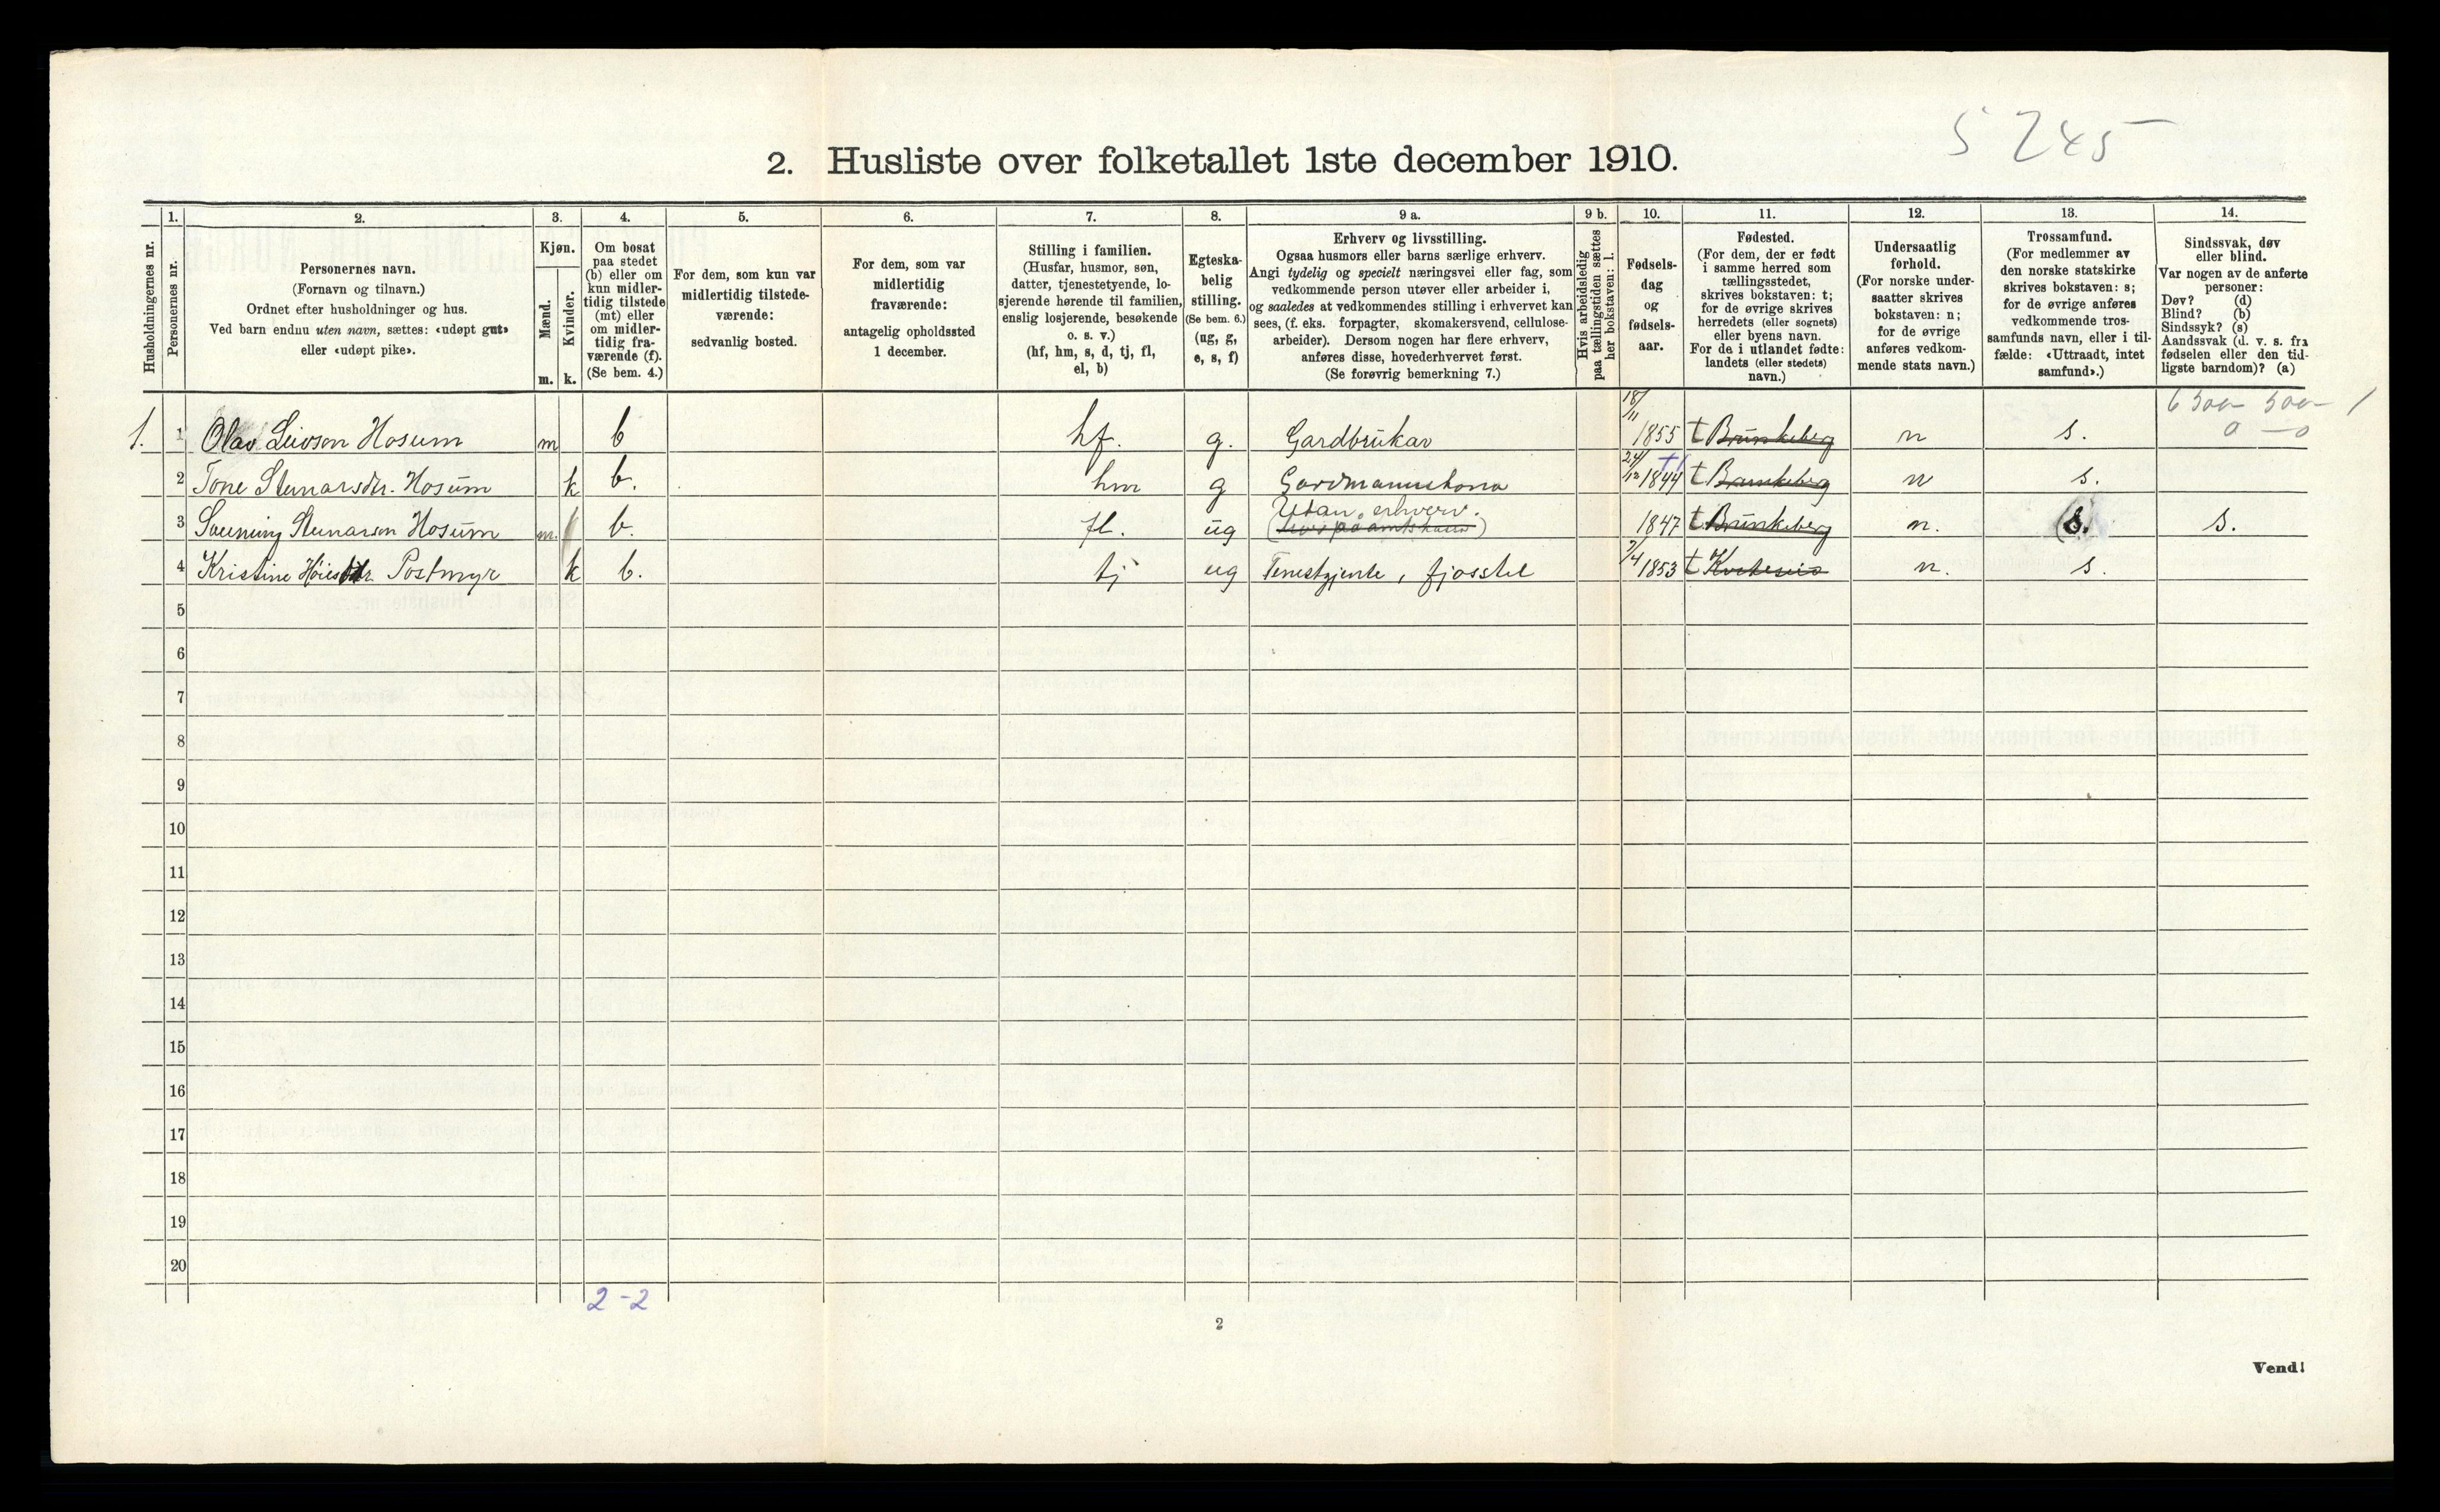 5 245
2. Husliste over folketallet 1ste december 1910.
Husholdningernes nr.
1.
Personernes nr.
2.
Personernes navn.
(Fornavn og tilnavn.)
Ordnet efter husholdninger og hus.
Ved barn endnu uten navn, sættes: «udøpt gut»
eller «udøpt pike».
3.
Kjøn.
Mænd.
m.
Kvinder.
k.
4.
Om bosat
paa stedet
(b) eller om
kun midler-
tidig tilstede
(mt) eller
om midler-
tidig fra-
værende (f).
(Se bem. 4.)
5.
For dem, som kun var
midlertidig tilstede-
værende:
sedvanlig bosted.
6.
For dem, som var
midlertidig
fraværende:
antagelig opholdssted
1 december.
7.
Stilling i familien.
(Husfar, husmor, søn,
datter, tjenestetyende, lo-
sjerende hørende til familien,
enslig losjerende, besøkende
o. s. v.)
(hf, hm, s, d, tj, fl,
el, b)
8.
Egteska-
belig
stilling.
(Se bem. 6.)
(ug, g,
e, s, f)
9 a.
Erhverv og livsstilling.
Ogsaa husmors eller barns særlige erhverv.
Angi tydelig og specielt næringsvei eller fag, som
vedkommende person utøver eller arbeider i,
og saaledes at vedkommendes stilling i erhvervet kan
sees, (f. eks. forpagter, skomakersvend, cellulose-
arbeider). Dersom nogen har flere erhverv,
anføres disse, hovederhvervet først.
(Se forøvrig bemerkning 7.)
9 b.
Hvis arbeidsledig
paa tællingstiden sættes
her bokstaven: l.
10.
Fødsels-
dag
og
fødsels-
aar.
11.
Fødested.
(For dem, der er født
i samme herred som
tællingsstedet,
skrives bokstaven: t;
for de øvrige skrives
herredets (eller sognets)
eller byens navn.
For de i utlandet fødte:
landets (eller stedets)
navn.)
12.
Undersaatlig
forhold.
(For norske under-
saatter skrives
bokstaven: n;
for de øvrige
anføres vedkom-
mende stats navn.)
13.
Trossamfund.
(For medlemmer av
den norske statskirke
skrives bokstaven: s;
for de øvrige anføres
vedkommende tros-
samfunds navn, eller i til-
fælde: «Uttraadt, intet
samfund».)
14.
Sindssvak, døv
eller blind.
Var nogen av de anførte
personer:
Døv? (d)
Blind? (b)
Sindssyk? (s)
Aandssvak (d. v. s. fra
fødselen eller den tid-
ligste barndom)? (a)
6 500 500 1
0 - 0
1. 1 Olav Leivson Hosum m b hf. g. Gardbrukar 18/11 1855 t Brunkeberg n s.
2 Tone Steinarsdtr. Hosum k b. hm g Gardmannskona 24/12 1844 t Brunkeberg n s.
3 Sveinung Steinarson Hosum m. b. fl. ug Utan erhverv. 1847 t Brunkeberg n. (s.) s.
4 Kristine Postmyr k b. tj ug Tenestgjente, fjosstel 7/4 1853 t Kviteseid n. s.
5
6
7
8
9
10
11
12
13
14
15
16
17
18
19
20
2 - 2
2
Vend!